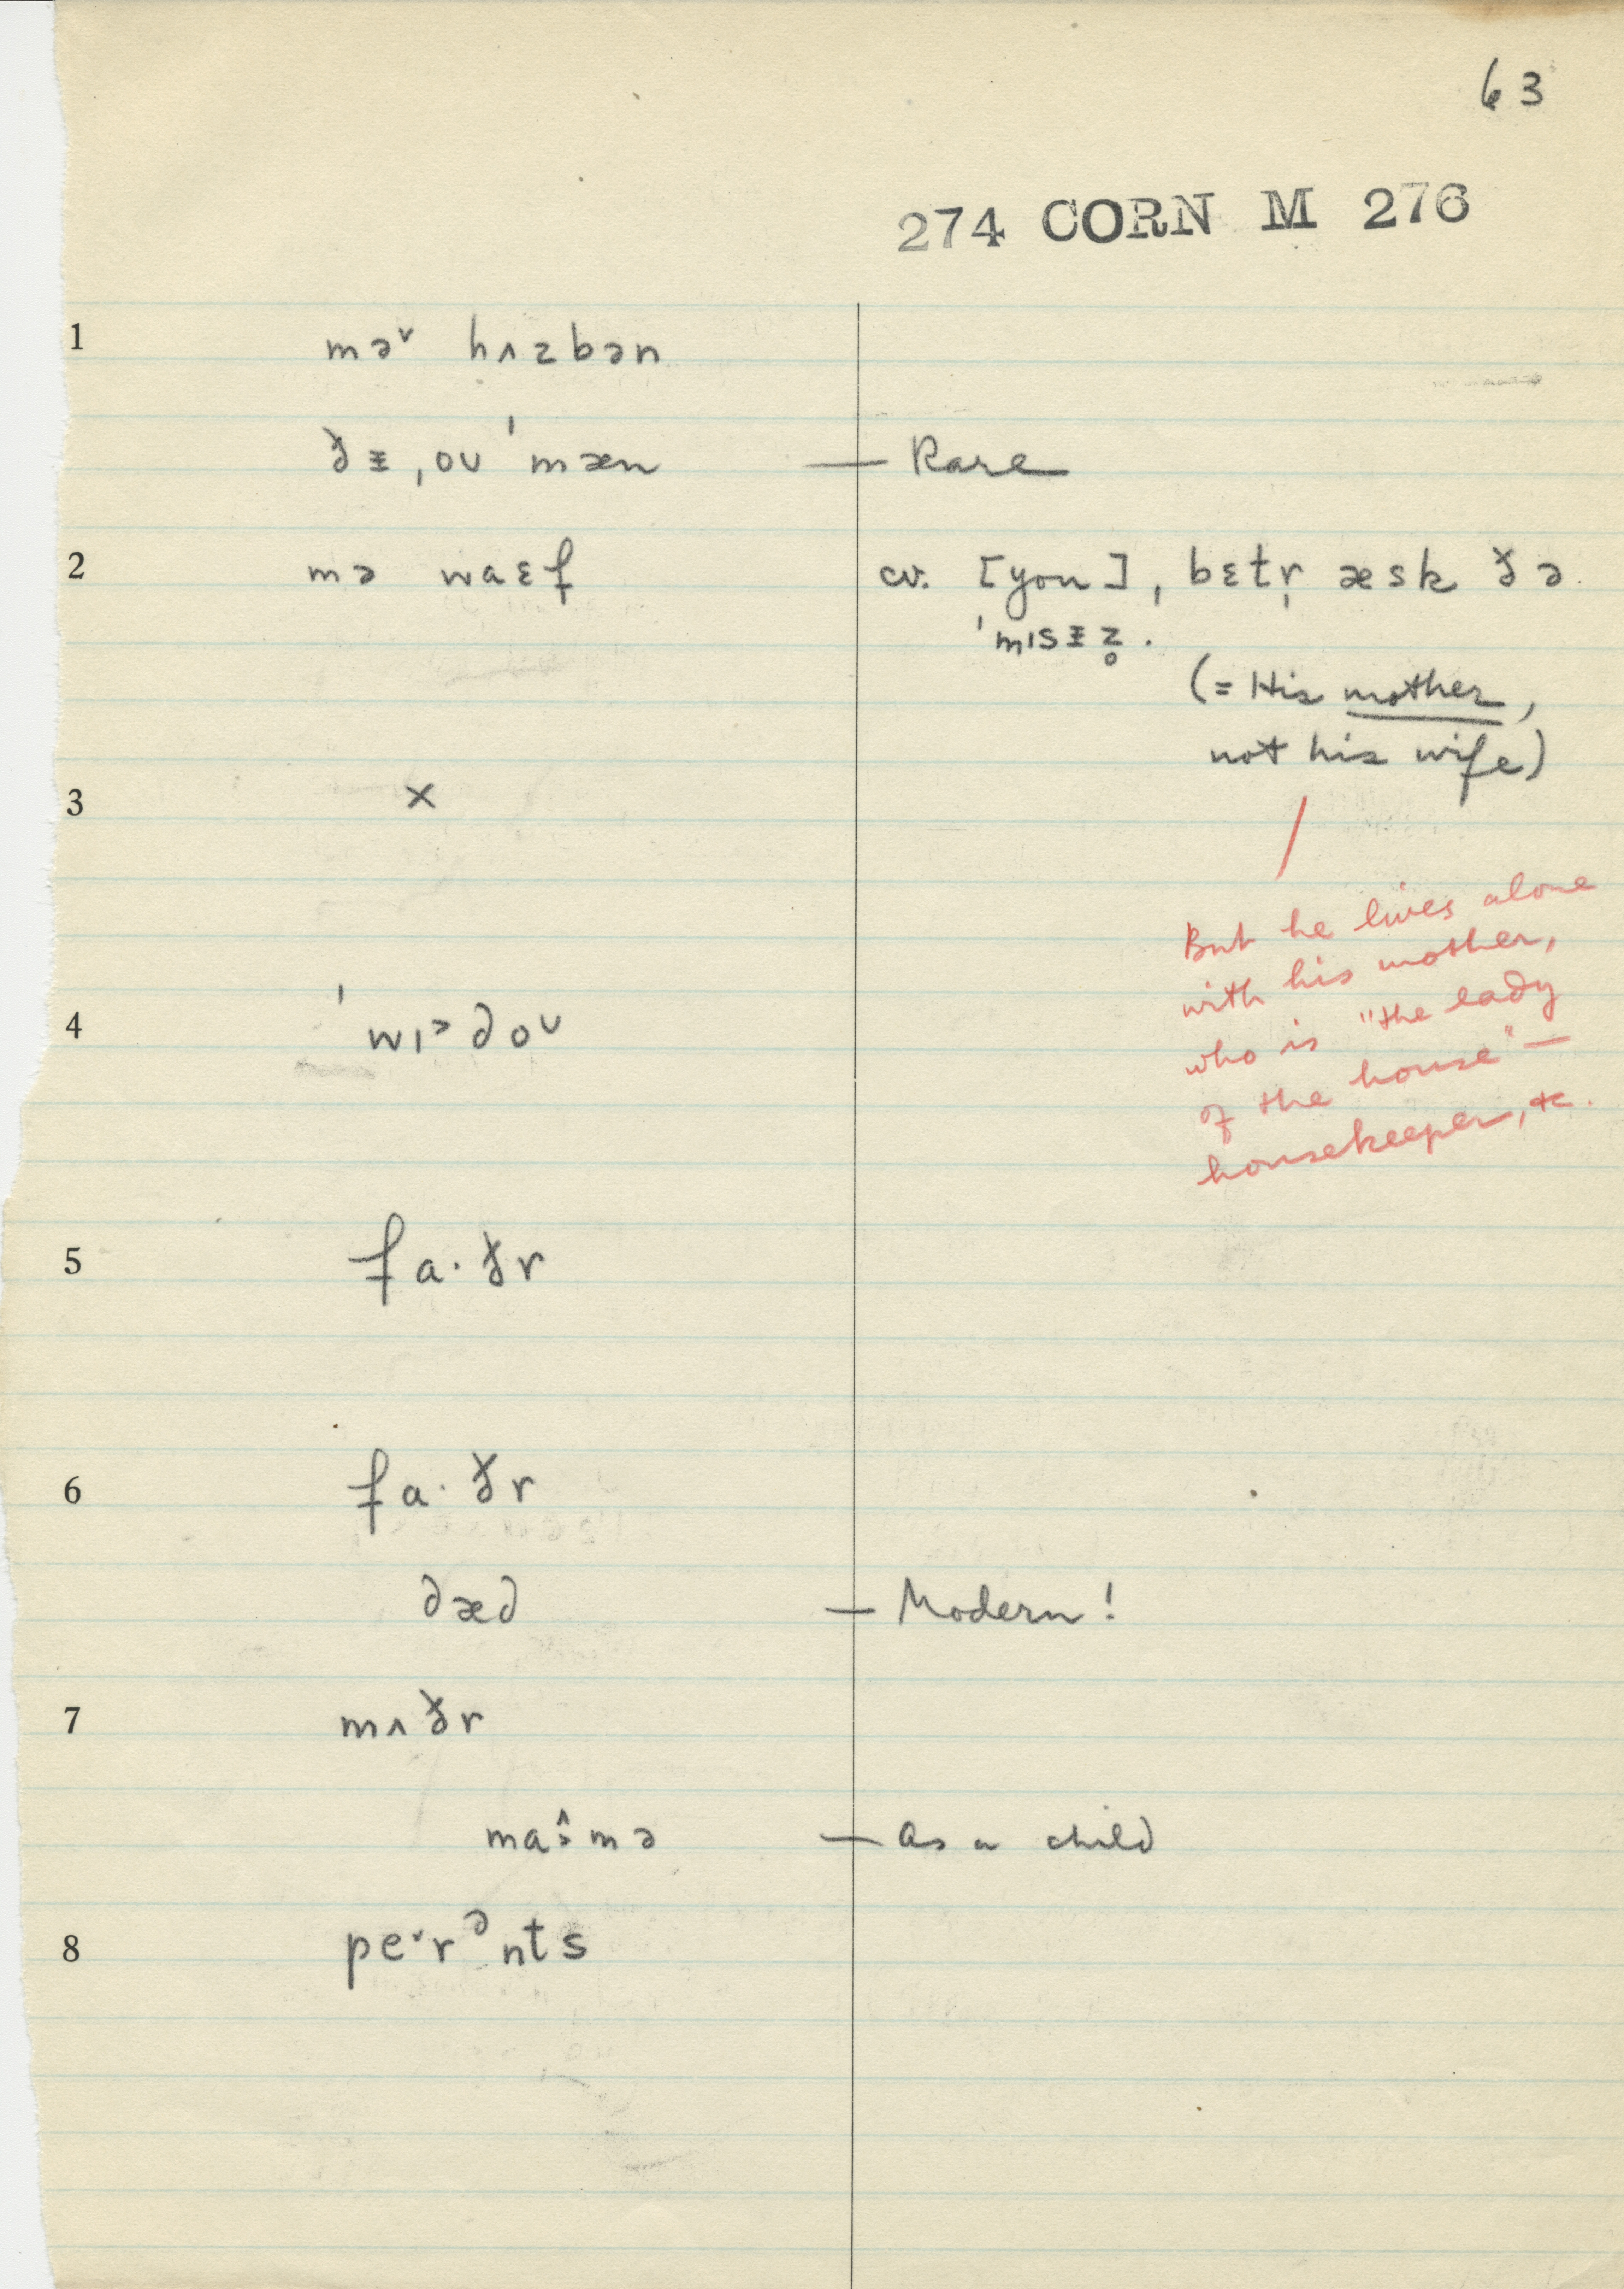 63
274 CORN M 276
1 mə˅ hʌzbən
ðᵻ ˌoʊ ˈmæn — Rare
2 mə waɛf cv. [you] ˌbɛtr̩ æsk ðə
ˈmɪsᵻz̥.
(= His mother,
not his wife)
3 ×
But he lives alone
with his mother,
who is "the lady
of the house" —
housekeeper, &c.
4 ˈwɪ˃doʊ
5 fa·ðr
6 fa·ðr
dæd — Modern!
7 mʌðr
ma·^˃mə — as a child
8 pe˅rᵊnts